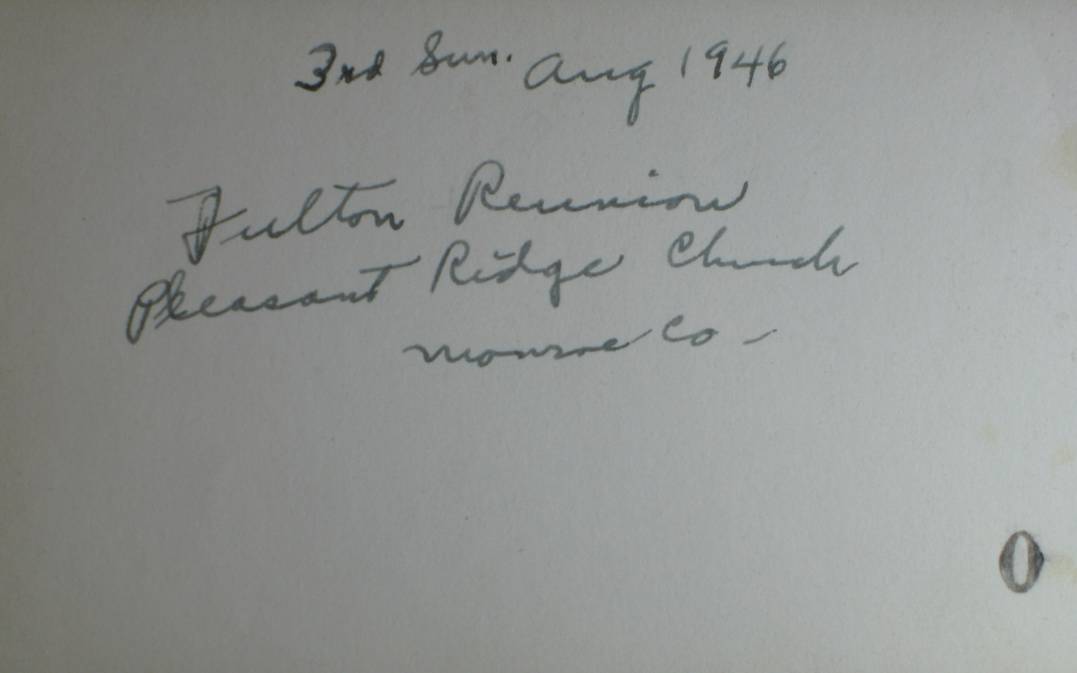 3rd Sun. Aug 1946
Fulton Reunion
Pleasant Ridge Church
Monroe Co -
0